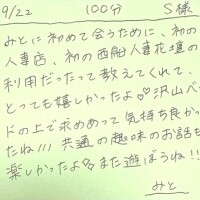 9/22 100分 S様
みとに初めて会うために、初の
人妻店、初の西船人妻花壇の
利用だったって教えてくれて、
とっても嬉しかったよ♡沢山ベッ
ドの上で求めあって気持ち良かっ
たね/// 共通の趣味のお話も
楽しかったよ♡また遊ぼうね!!
みと